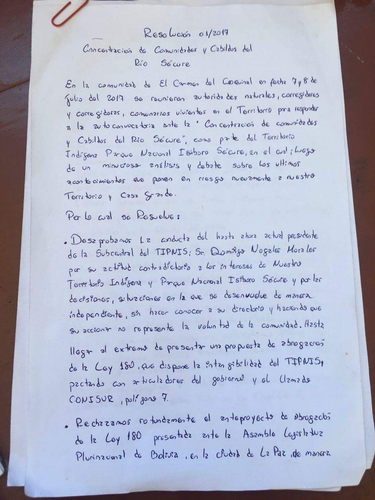 Resolución 01/2017
Concentración de Comunidades y Cabildos del
Río Sécure
En la comunidad de El Carmen del Coquinal en fecha 7 y 8 de
julio del 2017 se reunieron autoridades naturales, corregidores
y corregidoras, comunarios vivientes en el Territorio para responder
a la autoconvocatoria ante la "Concentración de comunidades
y Cabildos del Río Sécure", como parte del Territorio
Indígena Parque Nacional Isiboro Sécure, en el cual; luego
de un minucioso análisis y debate sobre los ultimos
acontecimientos que ponen en riesgo nuevamente a nuestro
Territorio y Casa Grande.
Por lo cual se Resuelve:
• Desaprobamos La conducta del hasta ahora actual presidente
de la Subcentral del TIPNIS; Sr. Domingo Nogales Morales
por su actitud contradictoria a los intereses de Nuestro
Territorio Indígena y Parque Nacional Isiboro Sécure y por las
decisiones, situaciones en la que se desenvuelve de manera
independiente, sin hacer conocer a su directorio y haciendo que
su accionar no represente la voluntad de la comunidad. Hasta
llegar al extremo de presentar una propuesta de abrogación
de la Ley 180, que dispone la intangibilidad del TIPNIS,
pactando con articuladores del gobierno y el llamado
CONISUR, polígono 7.
• Rechazamos rotundamente el anteproyecto de abrogación
de la Ley 180 presentada ante la Asamblea Legislativa
Plurinacional de Bolivia, en la ciudad de La Paz, de manera